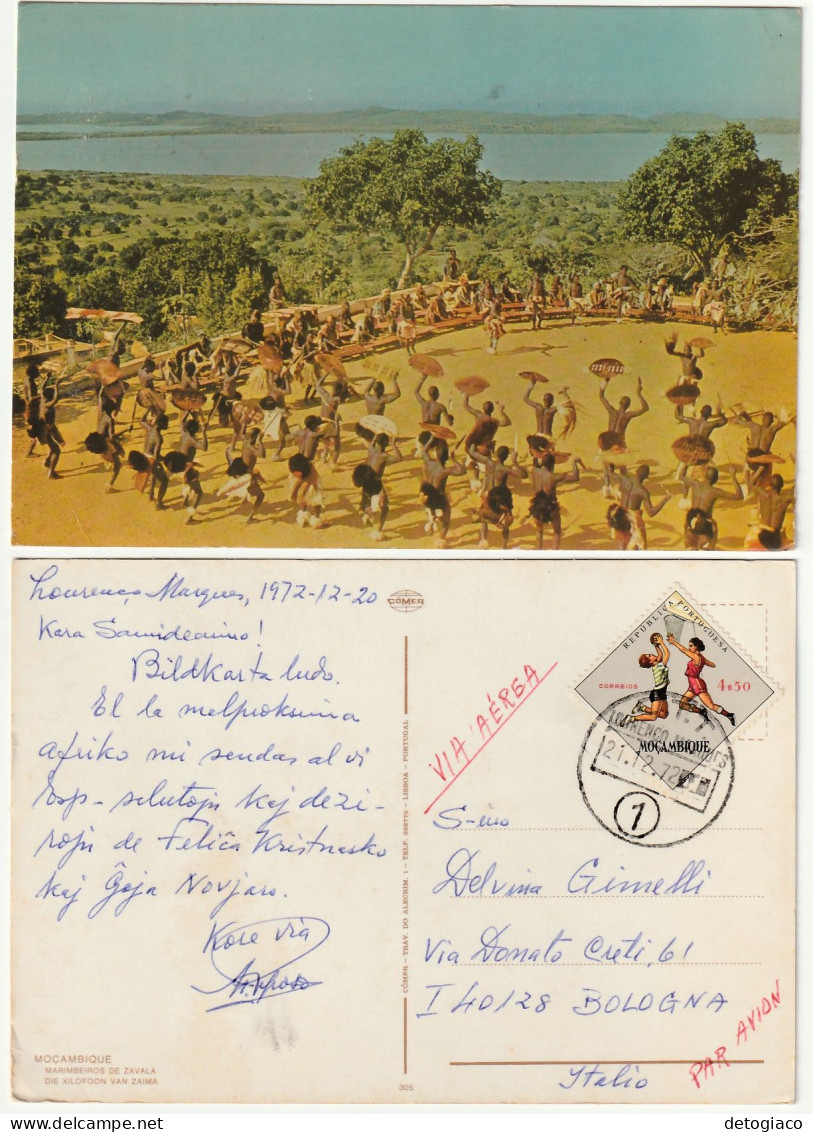 Lourenço Marques, 1972-12-20
Kara Samideanino!
Bildkarta ludo.
El la malproksima
Afriko mi sendas al vi
Esp-salutojn kaj dezi-
rojn de Feliĉa Kristnasko
kaj Ĝoja Novjaro.
Kore via
MOÇAMBIQUE
MARIMBEIROS DE ZAVALA
DIE XILOFOON VAN ZAIMA
CÓMER
CÓMER — TRAV. DO ALECRIM, 1 — TELF. 328775 — LISBOA — PORTUGAL
305
VIA AÉREA
REPUBLICA PORTUGUESA
CORREIOS
4$50
MOÇAMBIQUE
LOURENÇO MARQUES
21.12.72
1
S-ino
Delvina Gimelli
Via Donato Creti, 61
I 40128 BOLOGNA
Italio
PAR AVION
detogiaco